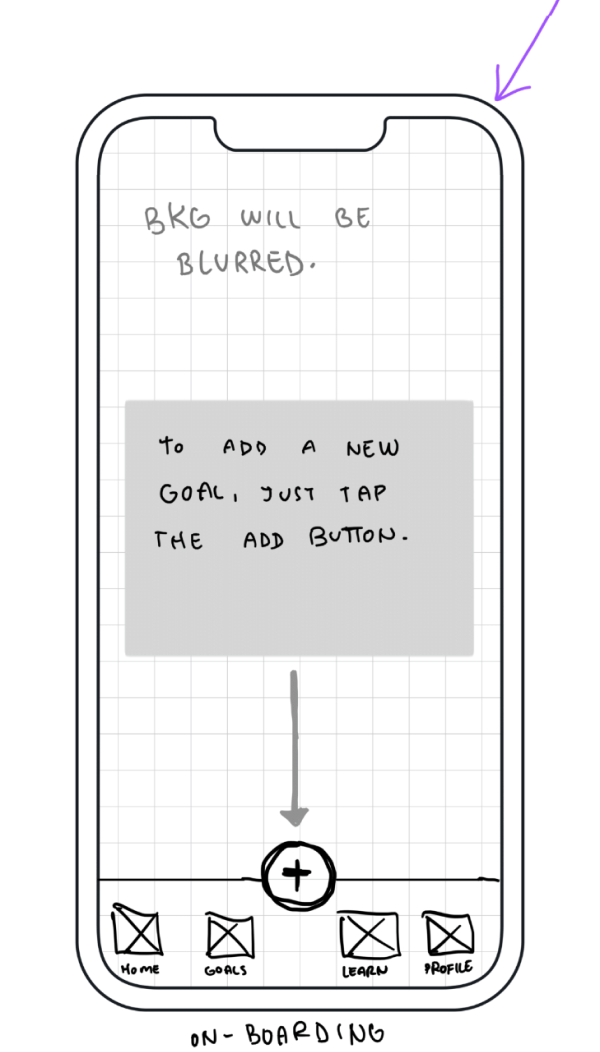 BKG WILL BE
BLURRED.
TO ADD A NEW
GOAL, JUST TAP
THE ADD BUTTON.
+
HOME GOALS LEARN PROFILE
ON-BOARDING